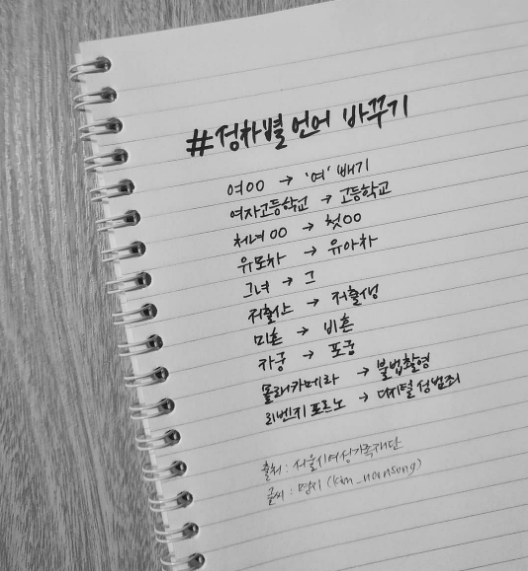 #성차별 언어 바꾸기
여OO → '여' 빼기
여자고등학교 → 고등학교
처녀OO → 첫OO
유모차 → 유아차
그녀 → 그
저출산 → 저출생
미혼 → 비혼
자궁 → 포궁
몰래카메라 → 불법촬영
리벤지 포르노 → 디지털 성범죄
출처 : 서울시여성가족재단
글씨 : 명시 (kim_noonsong)